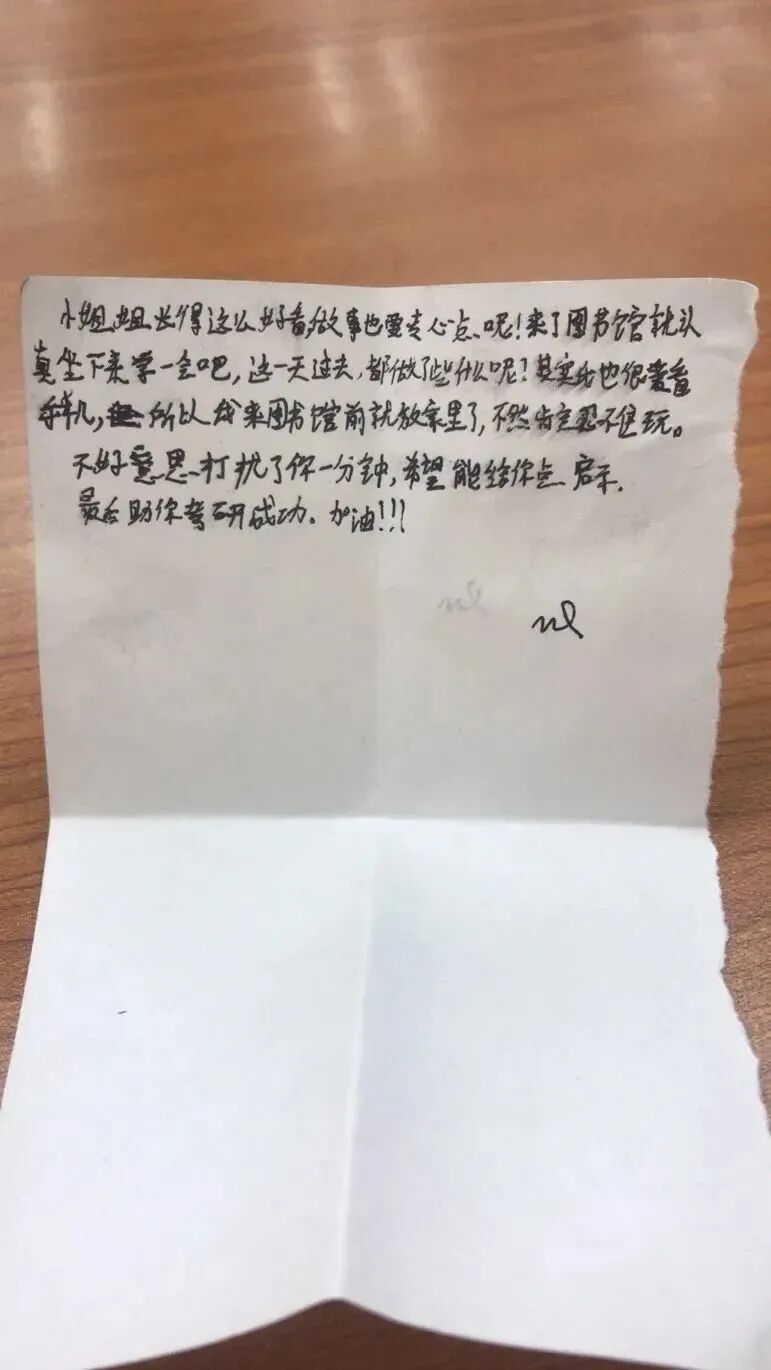 小姐姐长得这么好看做事也要专心点呢！来了图书馆就认
真坐下来学一会吧，这一天过去，都做了些什么呢？其实我也很爱看
手机，所以我来图书馆前就放家里了，不然肯定忍不住玩。
不好意思打扰了你一分钟，希望能给你点启示.
最后助你考研成功。加油！！！